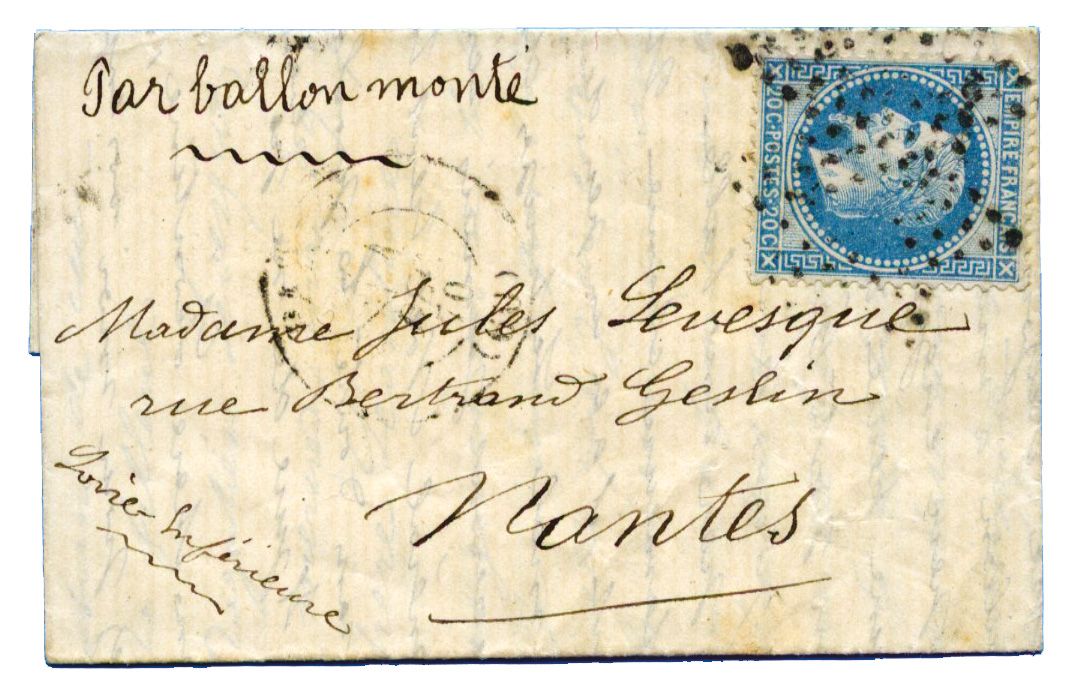 Par ballon monté
20 C · POSTES · 20 C
EMPIRE FRANÇAIS
Madame Jules Levesque
rue Bertrand Geslin
Nantes
Loire Inférieure